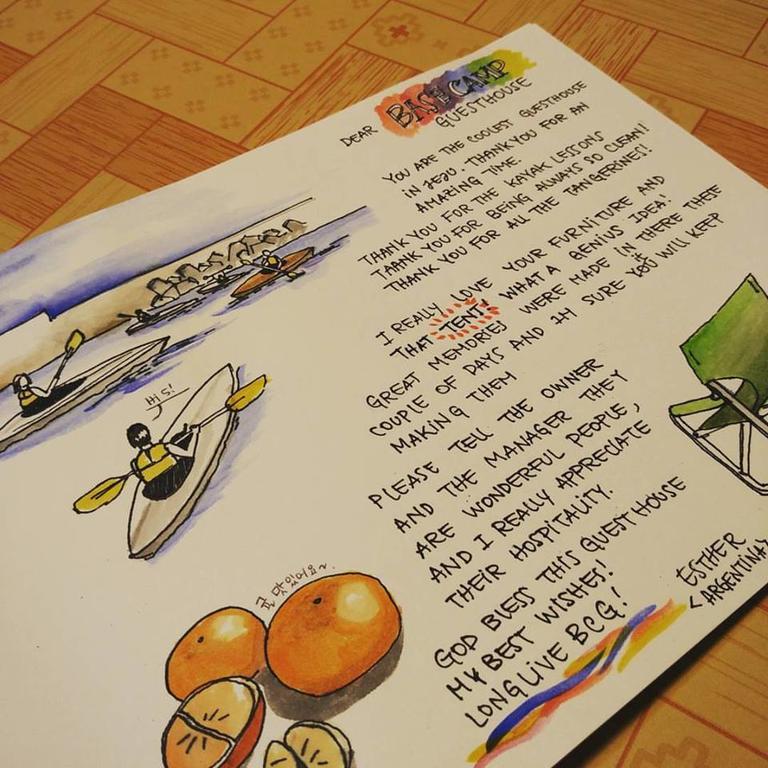 DEAR BASE CAMP
GUESTHOUSE
YOU ARE THE COOLEST GUESTHOUSE
IN JEJU. THANK YOU FOR AN
AMAZING TIME.
THANK YOU FOR THE KAYAK LESSONS
THANK YOU FOR BEING ALWAYS SO CLEAN!
THANK YOU FOR ALL THE TANGERINES!
I REALLY LOVE YOUR FURNITURE AND
THAT TENT, WHAT A GENIUS IDEA!
GREAT MEMORIES WERE MADE IN THERE THESE
COUPLE OF DAYS AND IM SURE YOU WILL KEEP
MAKING THEM
PLEASE TELL THE OWNER
AND THE MANAGER THEY
ARE WONDERFUL PEOPLE,
AND I REALLY APPRECIATE
THEIR HOSPITALITY.
GOD BLESS THIS GUEST HOUSE
MY BEST WISHES!
LONG LIVE BCG!
ESTHER
<ARGENTINA>
버드!
귤 맛있어요~